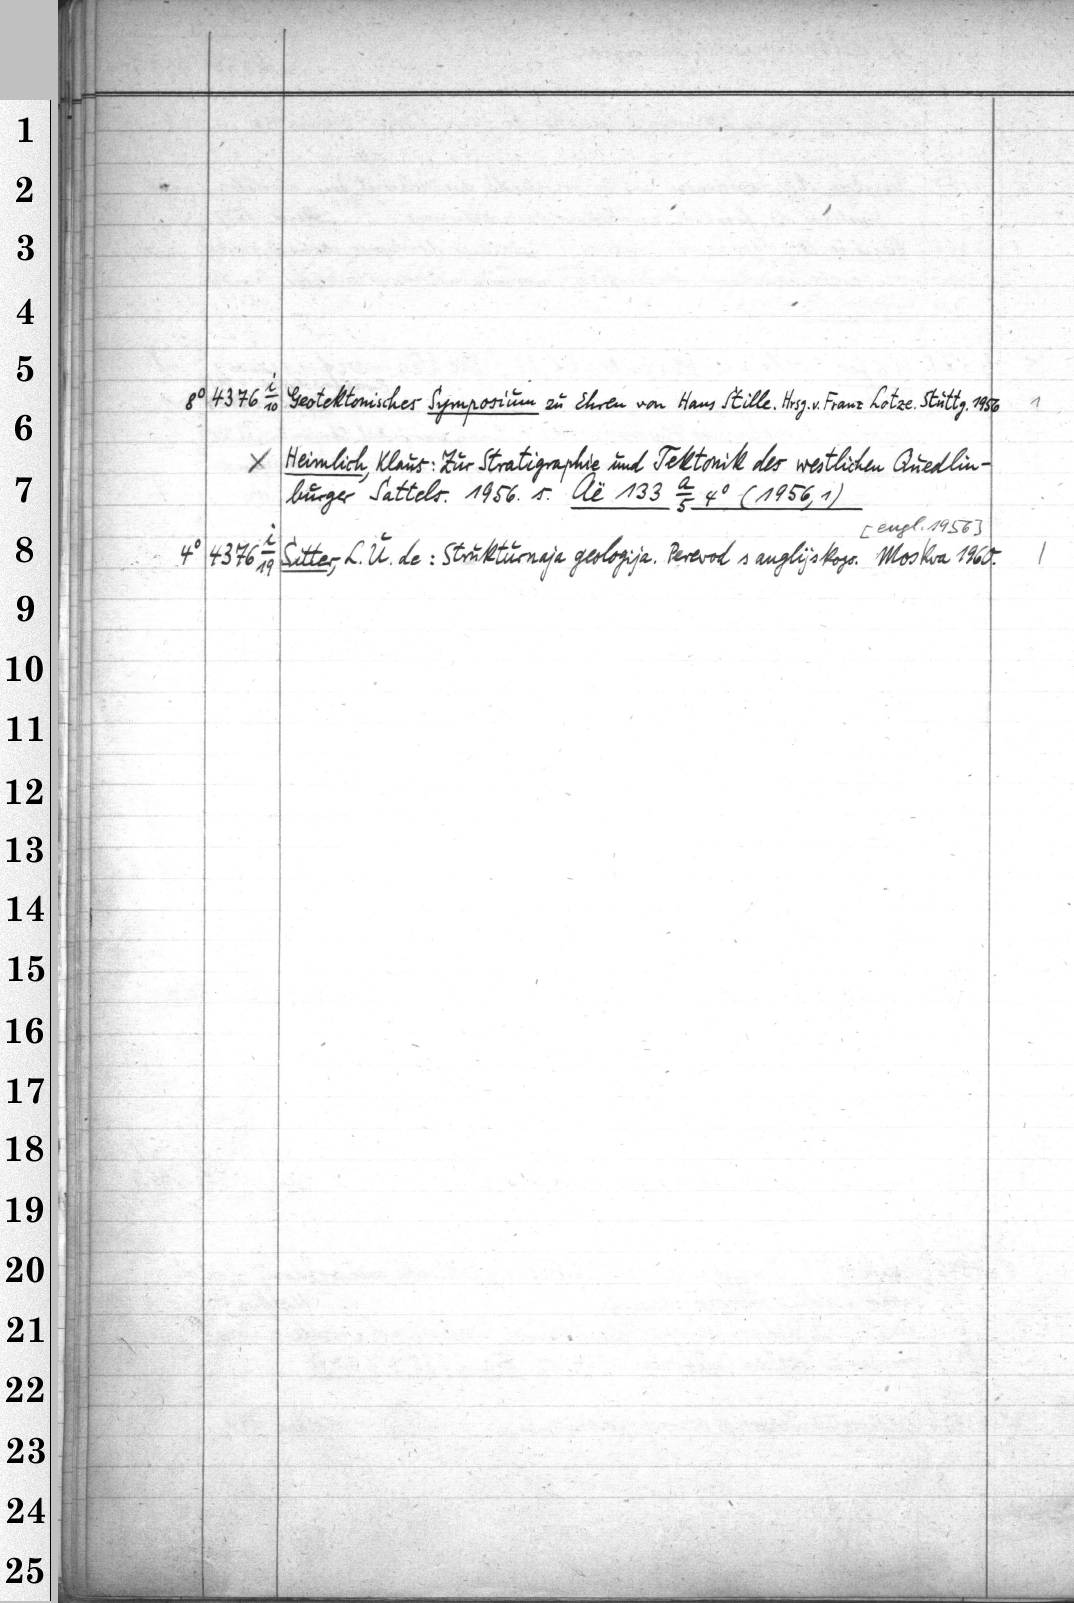 1
2
3
4
5
8° 4376 i/10 Geotektonisches Symposium zu Ehren von Hans Stille. Hrsg. v. Franz Lotze. Stuttg. 1956 1
6
X Heimlich, Klaus: Zur Stratigraphie und Tektonik des westlichen Quedlin-
7
burger Sattels. 1956. s. Aë 133 a/5 4° (1956,1)
[engl. 1956]
8
4° 4376 i/19 Sitter, L. U. de: Strukturnaja geologija. Perevod s anglijskogo. Moskva 1960. 1
9
10
11
12
13
14
15
16
17
18
19
20
21
22
23
24
25